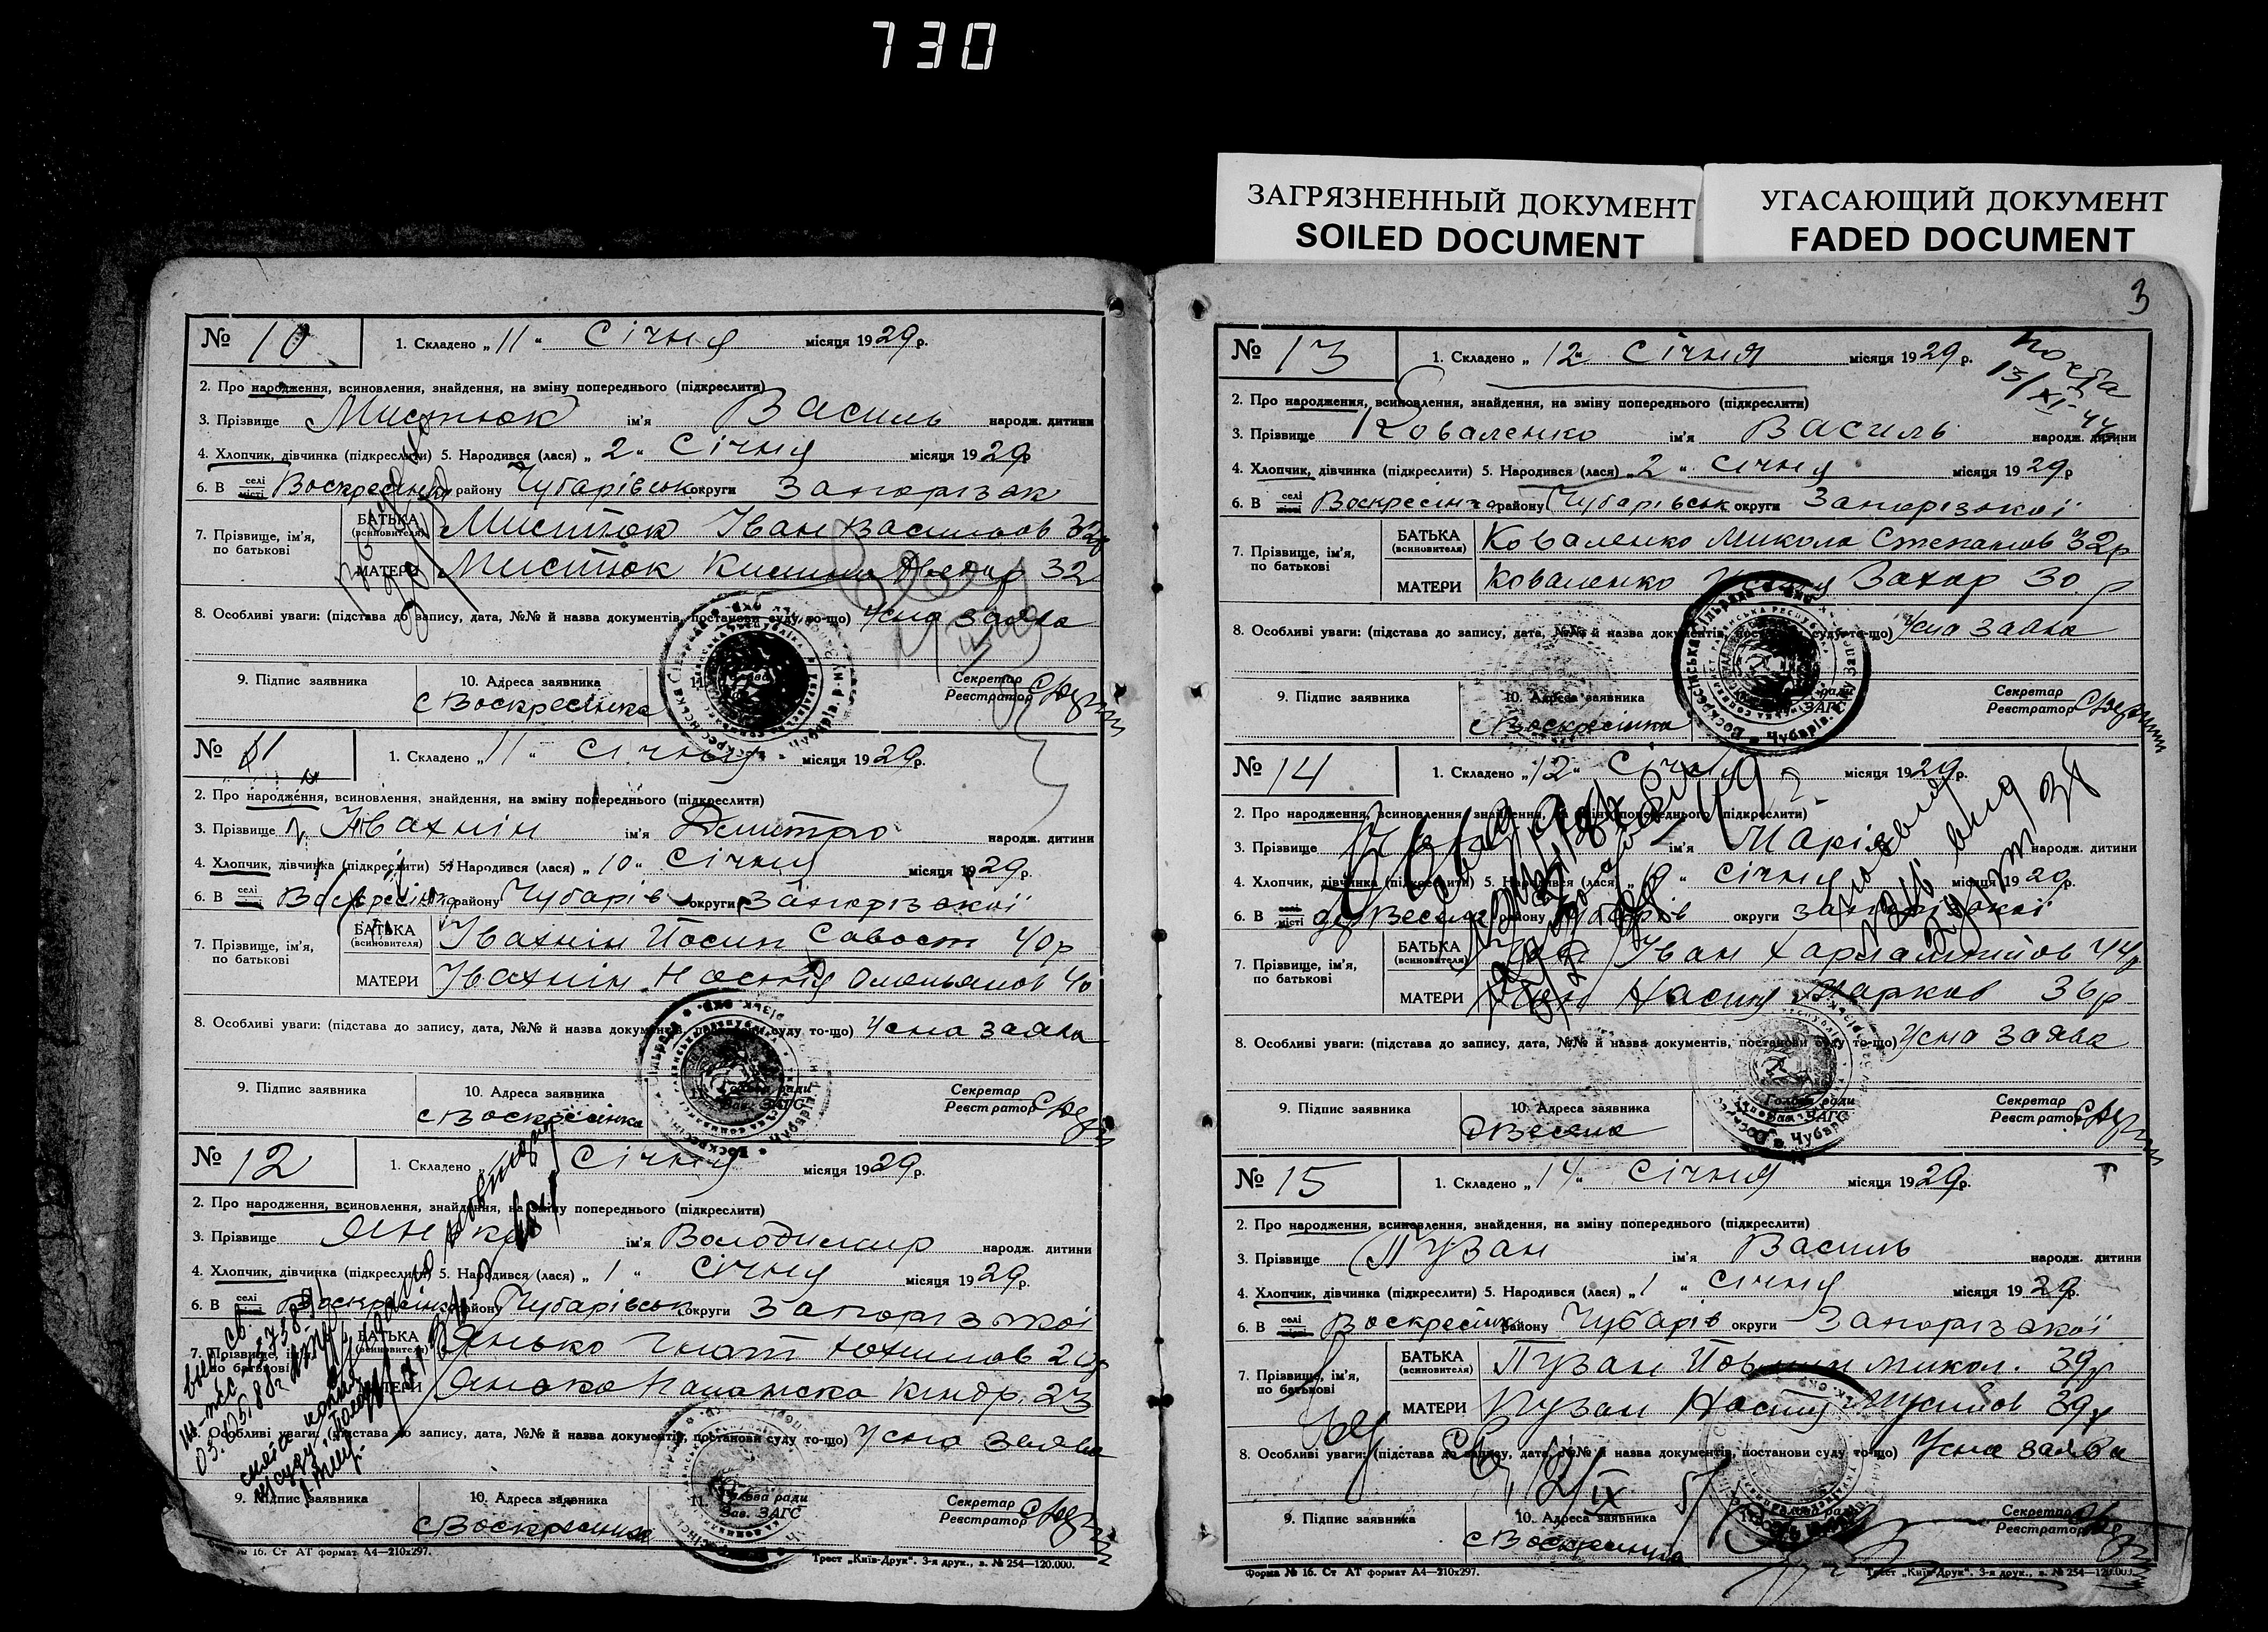 730
ЗАГРЯЗНЕННЫЙ ДОКУМЕНТ
SOILED DOCUMENT
УГАСАЮЩИЙ ДОКУМЕНТ
FADED DOCUMENT
№ 10 1. Складено „ 11 “ Січня місяця 1929 р.
2. Про народження, всиновлення, знайдення, на зміну попереднього (підкреслити)
3. Прізвище Мистюк ім'я Василь народж. дитини
4. Хлопчик, дівчинка (підкреслити) 5. Народився (лася) „ 2 “ Січня місяця 1929 р.
6. В селі місті Воскресінка району Чубарівськ округи Запорізьк
7. Прізвище, ім'я, по батькові
БАТЬКА (всиновителя) Мистюк Іван Васильов 32р
МАТЕРИ Мистюк 32
8. Особливі уваги: (підстава до запису, дата, №№ й назва документів, постанови суду то-що) Усна заява
9. Підпис заявника 10. Адреса заявника Секретар
с Воскресінка Реєстратор
№ 11 1. Складено „ 11 “ Січня місяця 1929 р.
2. Про народження, всиновлення, знайдення, на зміну попереднього (підкреслити)
3. Прізвище Івахнін ім'я Дмитро народж. дитини
4. Хлопчик, дівчинка (підкреслити) 5. Народився (лася) „ 10 “ Січня місяця 1929 р.
6. В селі Воскресінка району Чубарів округи Запорізької
7. Прізвище, ім'я, по батькові
БАТЬКА (всиновителя) Івахнін Йосип Савост 40р
МАТЕРИ Івахнін Настя Омельянов 40
8. Особливі уваги: (підстава до запису, дата, №№ й назва документів, постанови суду то-що) Усна заява
9. Підпис заявника 10. Адреса заявника Голова ради Зав. ЗАГС Секретар
с Воскресінка Реєстратор
№ 12 1. Складено „ Січня місяця 1929 р.
2. Про народження, всиновлення, знайдення, на зміну попереднього (підкреслити)
3. Прізвище ім'я Володимир народж. дитини
4. Хлопчик, дівчинка (підкреслити) 5. Народився (лася) „ 1 “ Січня місяця 1929 р.
6. В селі місті Воскресінка району Чубарівськ округи Запорізької
7. Прізвище, ім'я, по батькові
БАТЬКА (всиновителя) Янько Гнат Юхимов
МАТЕРИ Янько Палажка Кіндр. 23
8. Особливі уваги: (підстава до запису, дата, №№ й назва документів, постанови суду то-що) Усна заява
9. Підпис заявника 10. Адреса заявника 11. Голова ради Зав. ЗАГС Секретар
с Воскресінка Реєстратор
№ 16. Ст АТ формат А4—210х297. Трест „Київ-Друк“. 3-я друк., з. № 254—120.000.
3
№ 13 1. Складено „ 12 “ Січня місяця 1929 р.
2. Про народження, всиновлення, знайдення, на зміну попереднього (підкреслити)
3. Прізвище Коваленко ім'я Василь народж. дитини
4. Хлопчик, дівчинка (підкреслити) 5. Народився (лася) „ 2 “ Січня місяця 1929 р
6. В селі місті Воскресінка району Чубарівськ округи Запорізької
7. Прізвище, ім'я, по батькові
БАТЬКА (всиновителя) Коваленко Микола Степанов 32р
МАТЕРИ Коваленко Захар 30 р
8. Особливі уваги: (підстава до запису, дата, №№ й назва документів, постанови суду то-що) Усна заява
9. Підпис заявника 10. Адреса заявника Секретар
с Воскресінка Реєстратор
№ 14 1. Складено „ 12 “ Січня місяця 1929 р.
2. Про народження, всиновлення, знайдення, на зміну попереднього (підкреслити)
3. Прізвище ім'я Марія народж. дитини
4. Хлопчик, дівчинка (підкреслити) 5. Народився (лася) Січня місяця 1929 р.
6. В селі місті Весела району Чубарів округи Запорізької
7. Прізвище, ім'я, по батькові
БАТЬКА (всиновителя) Іван Харлампійов 44р
МАТЕРИ Настя Марков 36р
8. Особливі уваги: (підстава до запису, дата, №№ й назва документів, постанови суду то-що) Усна заява
9. Підпис заявника 10. Адреса заявника Голова ради Зав. ЗАГС Секретар
Реєстратор
№ 15 1. Складено „ 14 “ Січня місяця 1929 р.
2. Про народження, всиновлення, знайдення, на зміну попереднього (підкреслити)
3. Прізвище Пузан ім'я Василь народж. дитини
4. Хлопчик, дівчинка (підкреслити) 5. Народився (лася) „ 1 “ Січня місяця 1929 р.
6. В селі Воскресінка району Чубарів округи Запорізької
7. Прізвище, ім'я, по батькові
БАТЬКА (всиновителя) Пузан Микол. 39р
МАТЕРИ Пузан Настя 39р
8. Особливі уваги: (підстава до запису, дата, №№ й назва документів, постанови суду то-що) Усна заява
9. Підпис заявника 10. Адреса заявника Секретар
с Воскресінка Реєстратор
Форма № 16. Ст АТ формат А4—210х297. Трест „Київ-Друк“. 3-я друк., з. № 254—120.000.